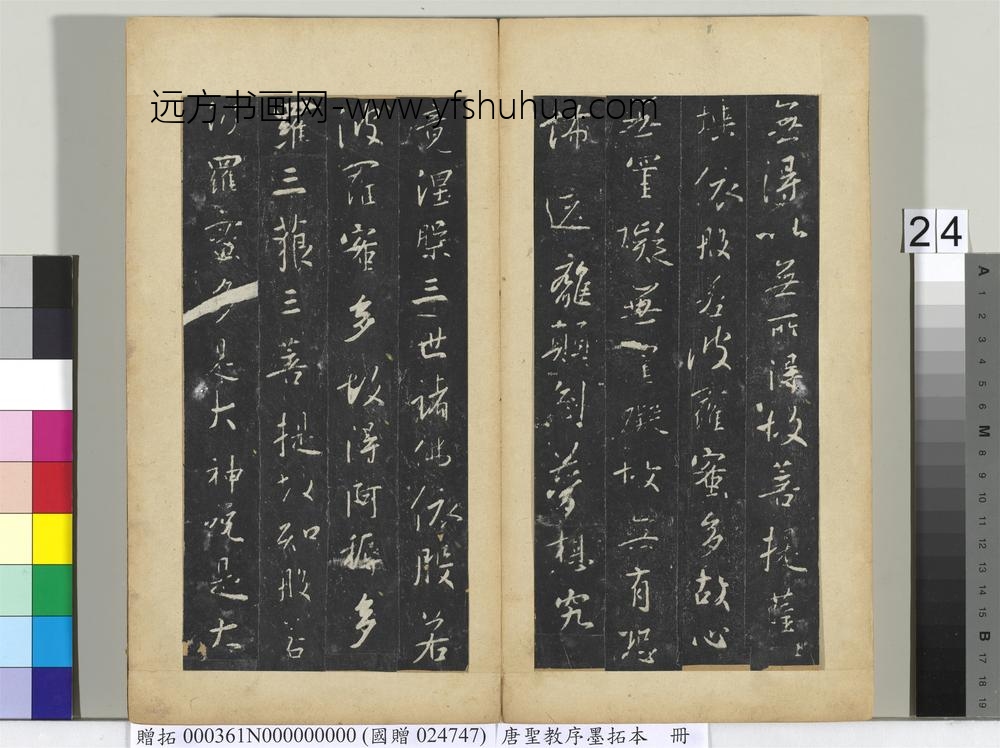 远方书画网-www.yfshuhua.com
無得以無所得故菩提薩
埵依般若波羅蜜多故心
無罣礙無罣礙故無有恐
怖遠離顛倒夢想究
竟涅槃三世諸佛依般若
波羅蜜多故得阿耨多
羅三藐三菩提故知般若
波羅蜜多是大神呪是大
24
A 1 2 3 4 5 6 M 8 9 10 11 12 13 14 15 B 17 18 19
贈拓 000361N000000000 (國贈 024747) 唐聖教序墨拓本 冊